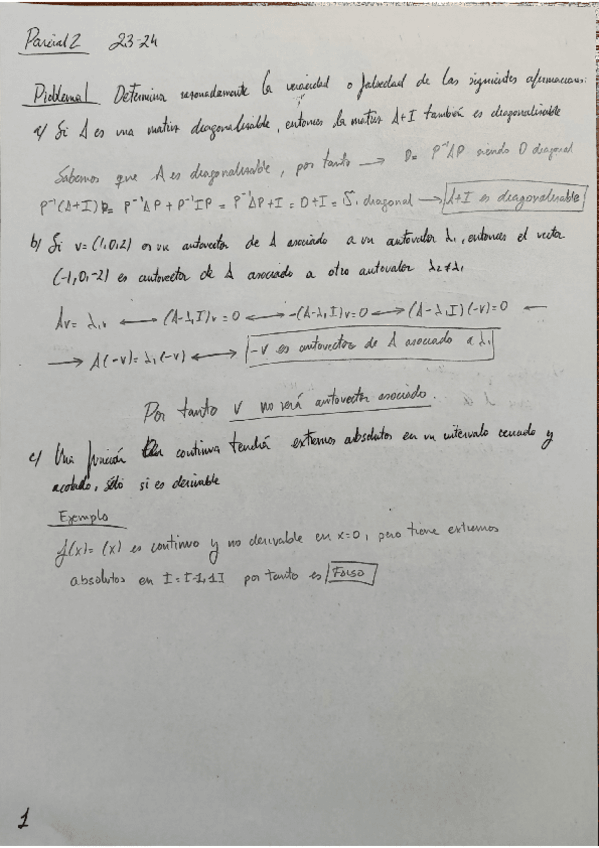 Parcial 2 23-24
Problema 1 Determina razonadamente la veracidad o falsedad de las siguientes afirmaciones:
a) Si A es una matriz diagonalizable, entonces la matriz A+I también es diagonalizable
Sabemos que A es diagonalizable, por tanto → D = P⁻¹AP siendo D diagonal
P⁻¹(A+I)P = P⁻¹AP + P⁻¹IP = P⁻¹AP + I = D + I = diagonal → A+I es diagonalizable
b) Si v = (1,0,2) es un autovector de A asociado a un autovalor λ₁, entonces el vector
(-1,0,-2) es autovector de A asociado a otro autovalor λ₂≠λ₁
Av = λ₁v ↔ (A-λ₁I)v = 0 ↔ -(A-λ₁I)v = 0 ↔ (A-λ₁I)(-v) = 0 ←
→ A(-v) = λ₁(-v) ↔ -v es autovector de A asociado a λ₁
Por tanto v no será autovector asociado.
c) Una función continua tendrá extremos absolutos en un intervalo cerrado y
acotado, sólo si es derivable
Ejemplo
f(x) = (x) es continuo y no derivable en x=0, pero tiene extremos
absolutos en I = [-1,1] por tanto es Falso
1